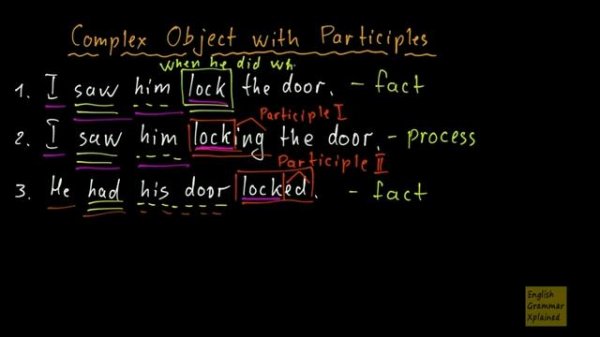 Complex Object with Participles
when he did wh.
1. I saw him lock the door. – fact
Participle I
2. I saw him locking the door. – process
Participle II
3. He had his door locked. – fact
English
Grammar
Xplained